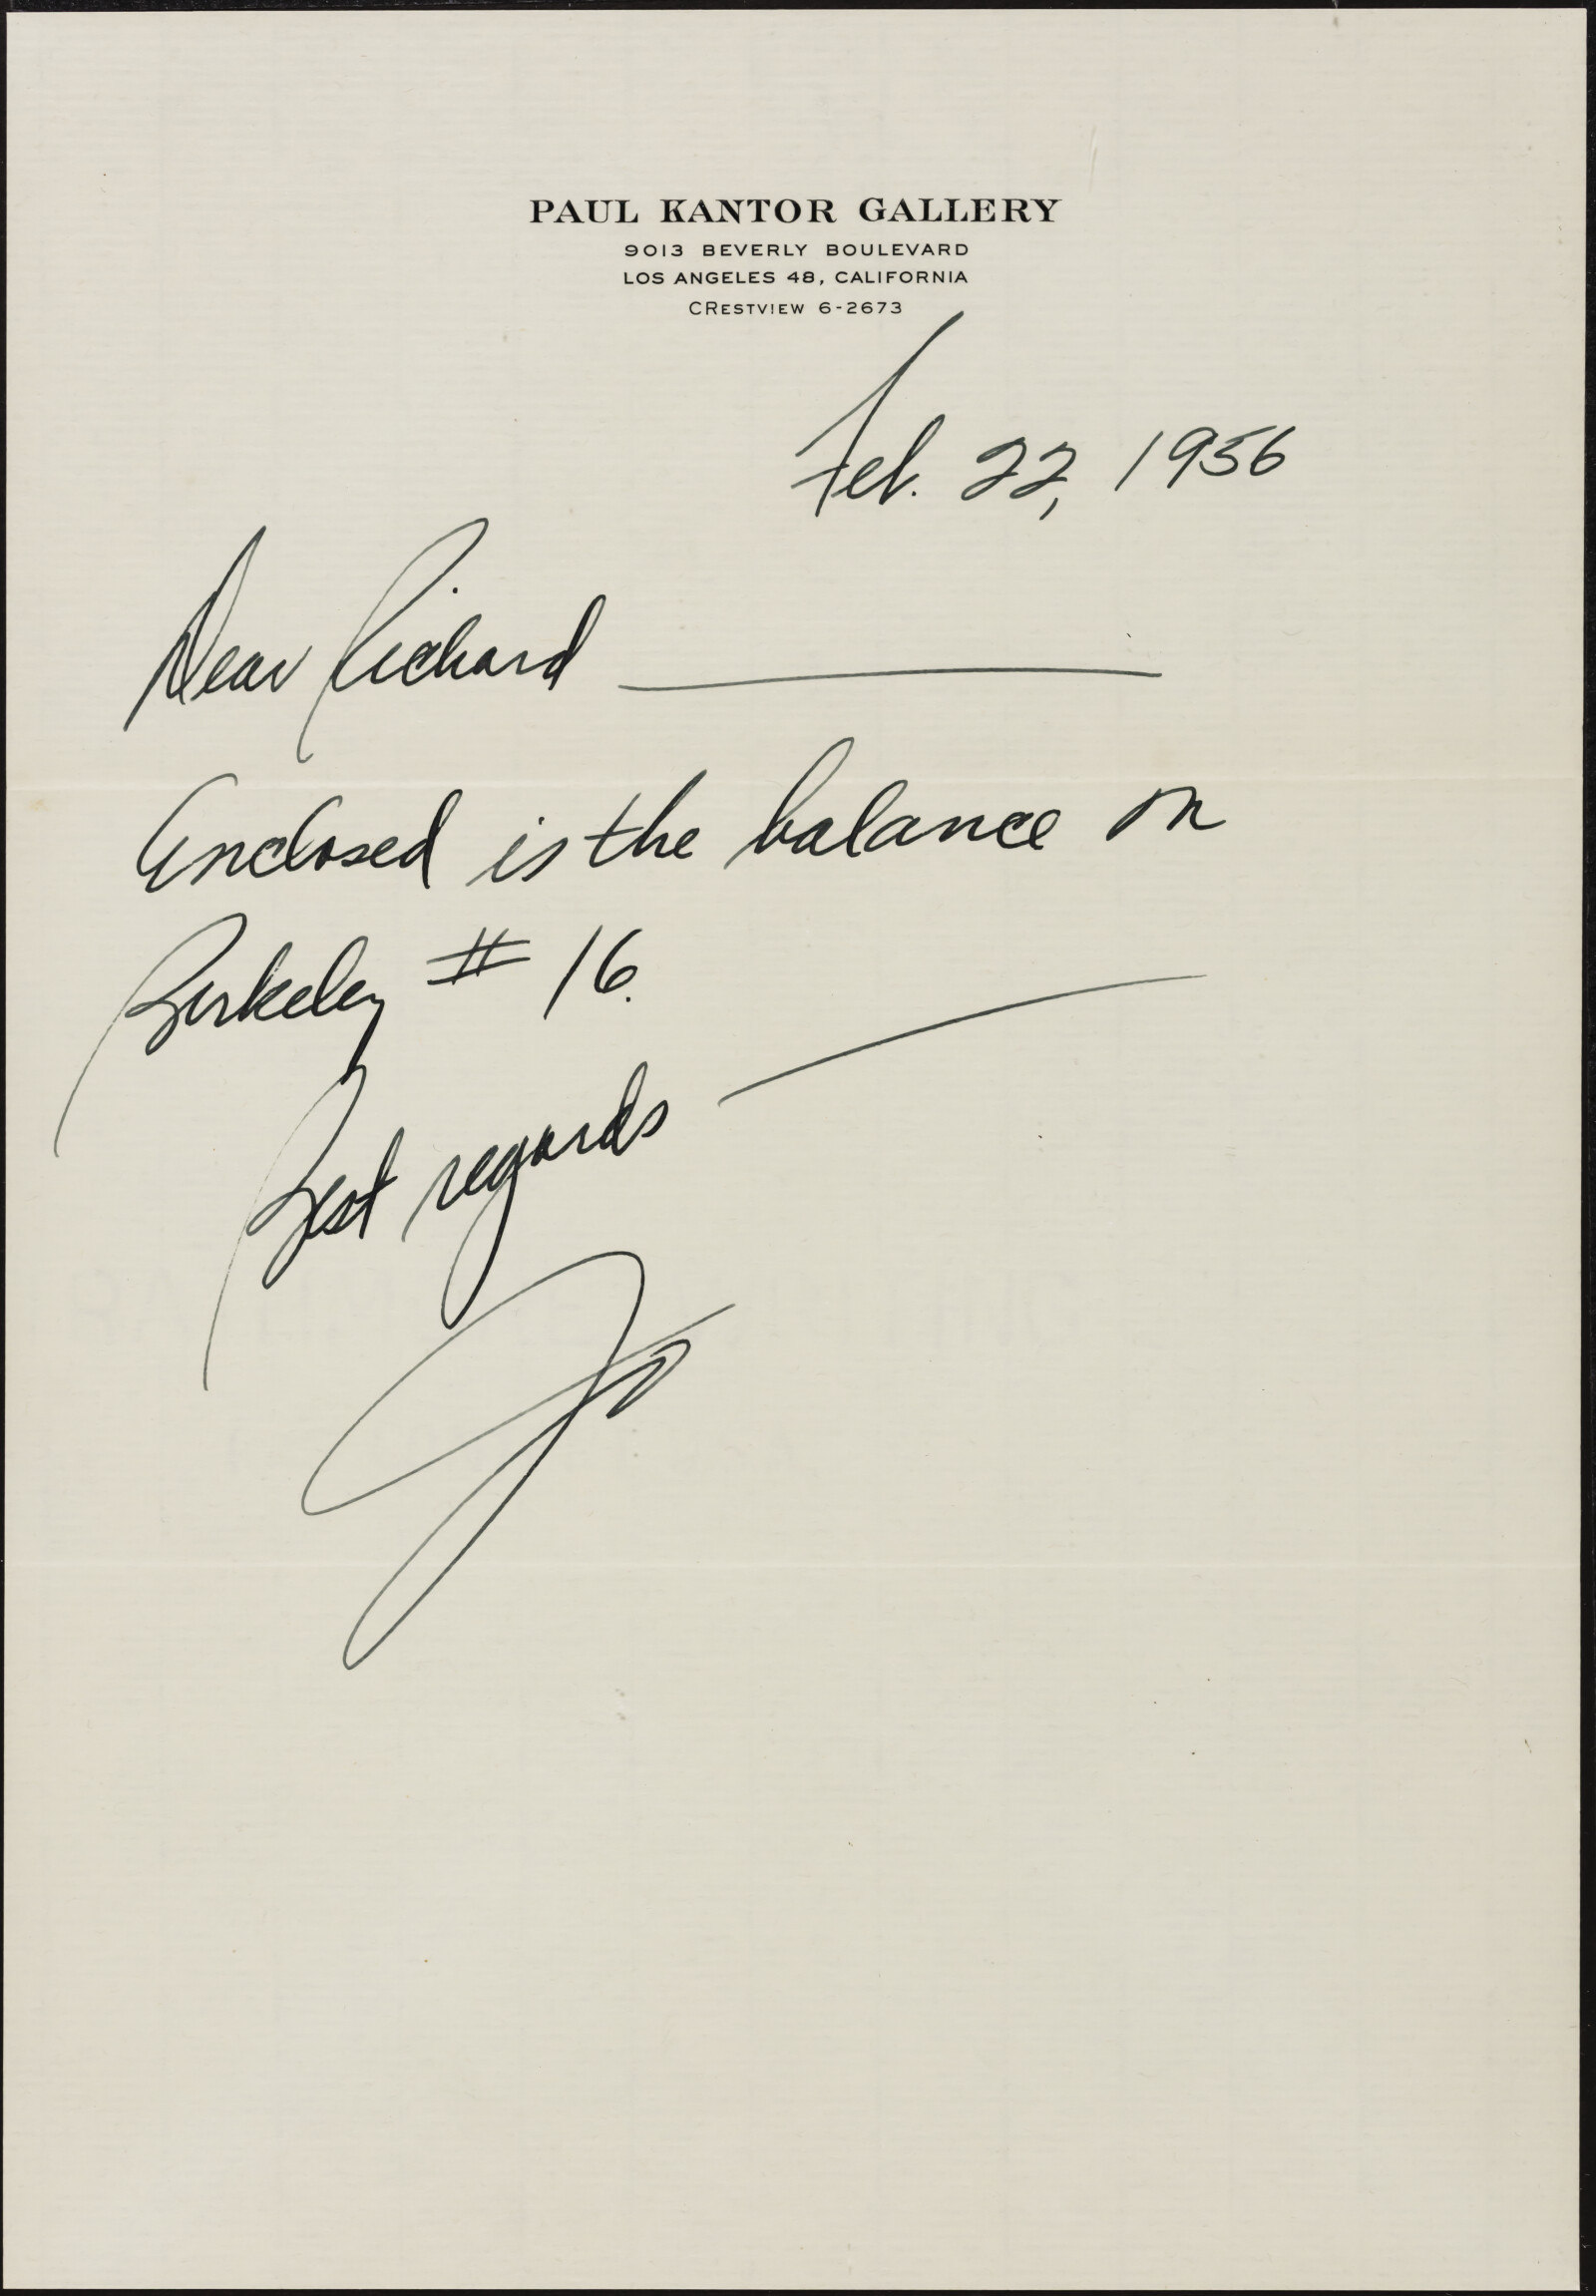 PAUL KANTOR GALLERY
9013 BEVERLY BOULEVARD
LOS ANGELES 48, CALIFORNIA
CRESTVIEW 6-2673
Feb. 22, 1956
Dear Richard —
Enclosed is the balance on
Berkeley # 16.
Best regards —
Jo